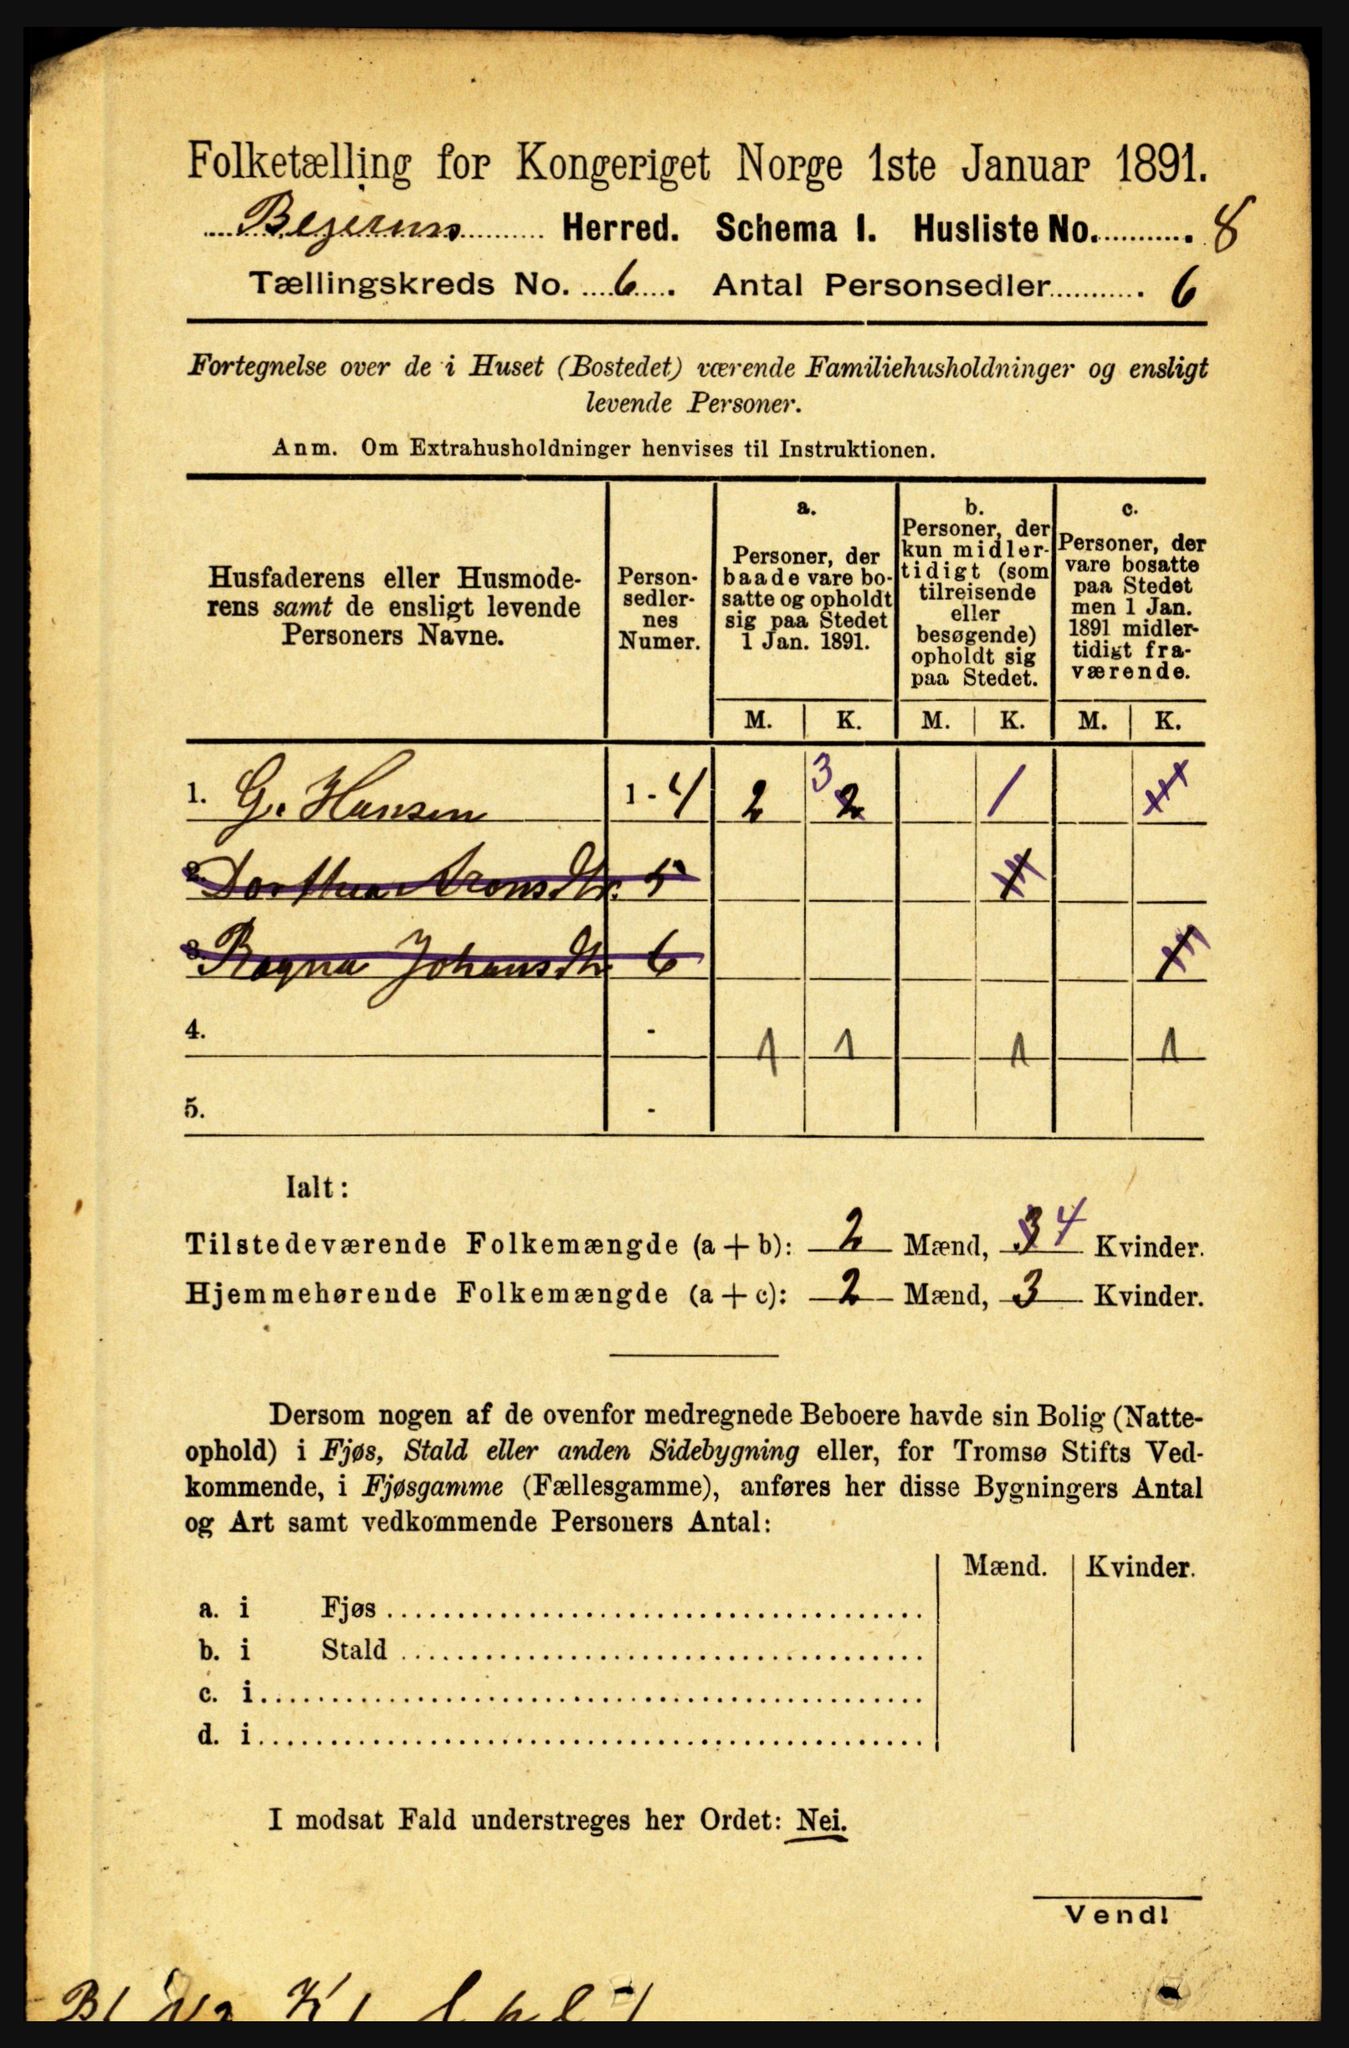 Folketælling for Kongeriget Norge 1ste Januar 1891.
Bejerens Herred. Schema I. Husliste No. 8
Tællingskreds No. 6. Antal Personsedler 6
Fortegnelse over de i Huset (Bostedet) værende Familiehusholdninger og ensligt
levende Personer.
Anm. Om Extrahusholdninger henvises til Instruktionen.
Husfaderens eller Husmode-
rens samt de ensligt levende
Personers Navne.
Person-
sedler-
nes
Numer.
a.
Personer, der
baade vare bo-
satte og opholdt
sig paa Stedet
1 Jan. 1891.
b.
Personer, der
kun midler-
tidigt (som
tilreisende
eller
besøgende)
opholdt sig
paa Stedet.
c.
Personer, der
vare bosatte
paa Stedet
men 1 Jan.
1891 midler-
tidigt fra-
værende.
M. K. M. K. M. K.
1. G. Hansen 1 - 4 2 3 2 1
2. Dorthea Aronsdtr. 5
3. Ragna Johansdtr. 6
4. - 1 1 1 1
5. -
Ialt:
Tilstedeværende Folkemængde (a + b): 2 Mænd, 3 4 Kvinder.
Hjemmehørende Folkemængde (a + c): 2 Mænd, 3 Kvinder.
Dersom nogen af de ovenfor medregnede Beboere havde sin Bolig (Natte-
ophold) i Fjøs, Stald eller anden Sidebygning eller, for Tromsø Stifts Ved-
kommende, i Fjøsgamme (Fællesgamme), anføres her disse Bygningers Antal
og Art samt vedkommende Personers Antal:
Mænd. Kvinder.
a. i Fjøs
b. i Stald
c. i
d. i
I modsat Fald understreges her Ordet: Nei.
Vend!